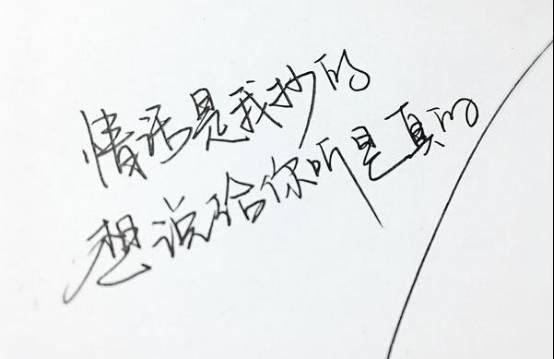 情话是我抄的
想说给你听是真的